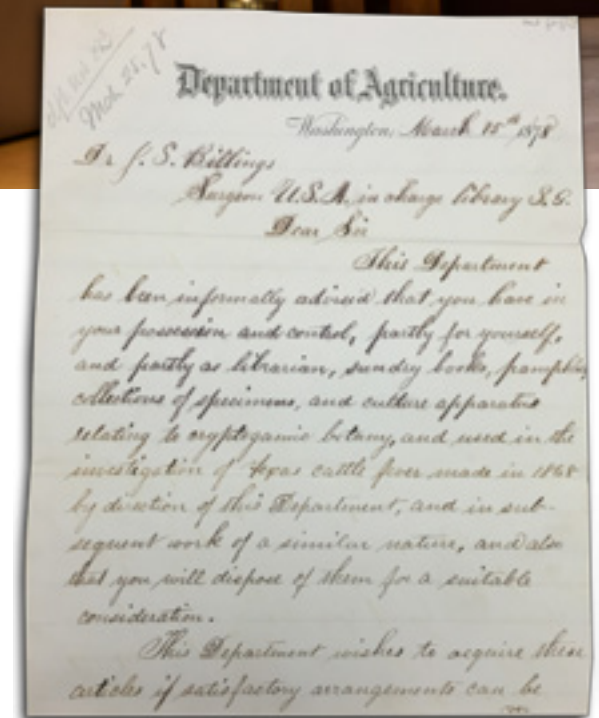 Mch 25, 78
Department of Agriculture.
Washington, March 15th 1878
Dr J. S. Billings
Surgeon U.S.A. in charge library S.G.
Dear Sir
This Department
has been informally advised that you have in
your possession and control, partly for yourself,
and partly as librarian, sundry books, pamphlets,
collections of specimens, and culture apparatus
relating to cryptogamic botany, and used in the
investigation of Texas cattle fever made in 1868
by direction of this Department, and in sub-
sequent work of a similar nature, and also
that you will dispose of them for a suitable
consideration.
This Department wishes to acquire these
articles if satisfactory arrangements can be